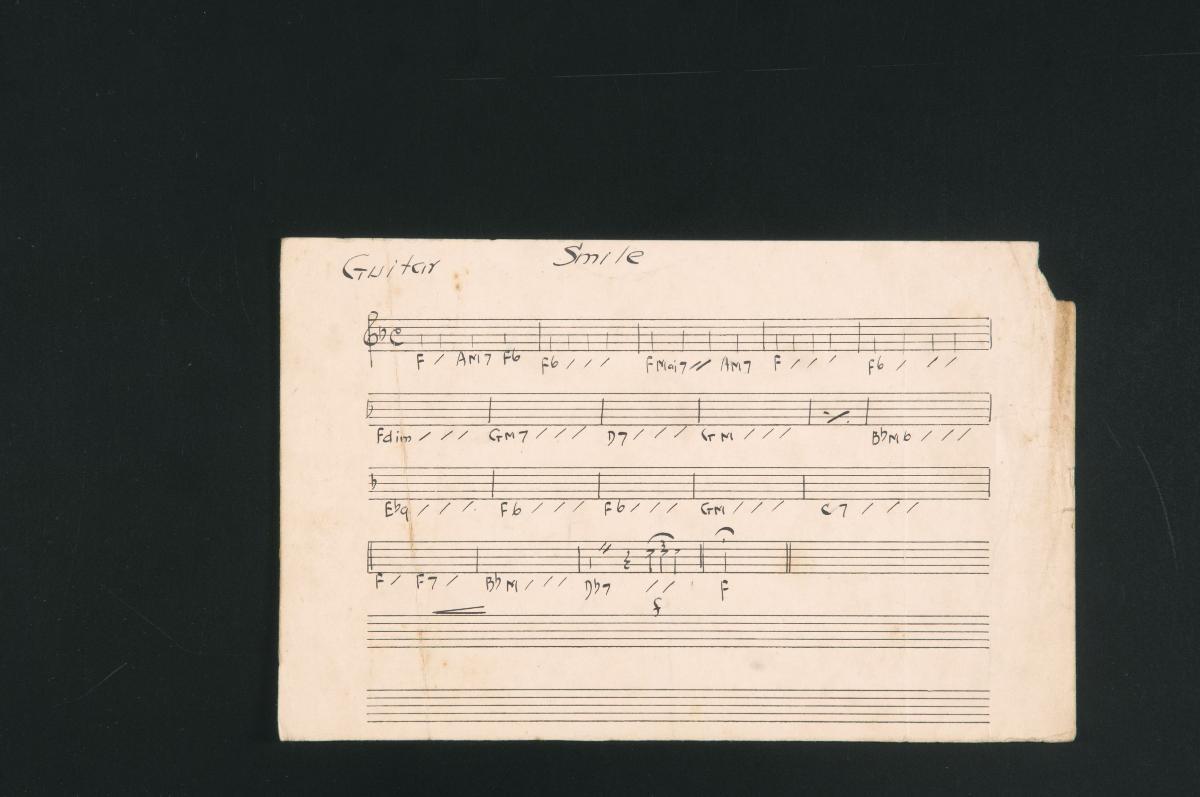 Guitar Smile
F / AM7 F6 F6 / / / FMaj7 // AM7 F / / / F6 / / /
Fdim / / / GM7 / / / / D7 / / / / GM / / / B♭M6 / / /
E♭9 / / / F6 / / / F6 / / / GM / / / C7 / / /
F / F7 / B♭M / / / D♭7 / / F
f